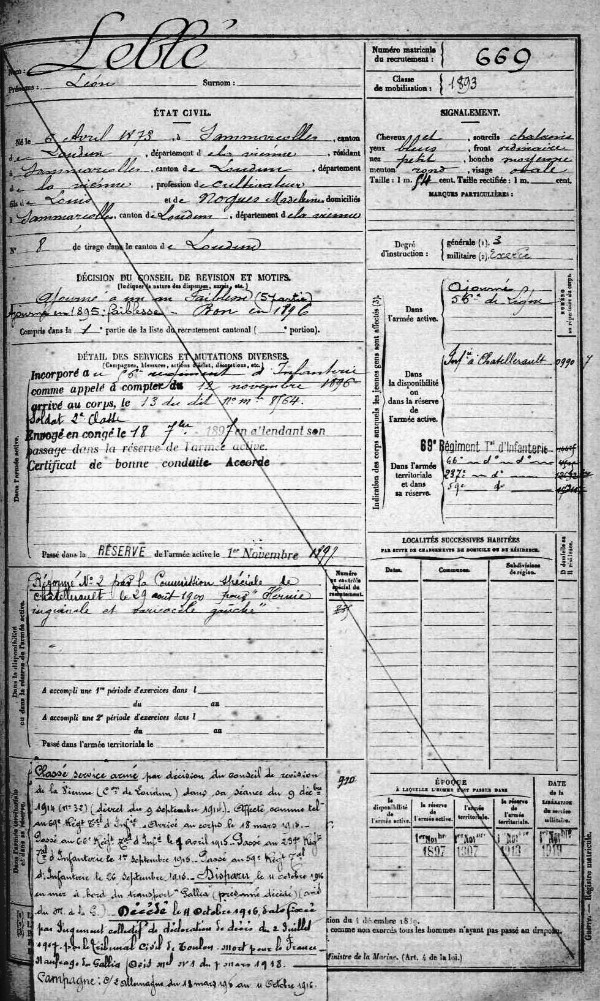 Leblé
Nom :
Prénoms : Léon Surnom :
Numéro matricule du recrutement : 669
Classe de mobilisation : 1893
ÉTAT CIVIL.
Né le 8 Avril 1873, à Sammarcolles, canton
de Loudun, département de la Vienne, résidant
à Sammarcolles, canton de Loudun, département
de la Vienne, profession de cultivateur
fils de Louis et de Noques Madeleine, domiciliés
à Sammarcolles, canton de Loudun, département de la Vienne
N° 8 de tirage dans le canton de Loudun
SIGNALEMENT.
Cheveux et sourcils chatains
yeux bleus, front ordinaire
nez petit, bouche moyenne
menton rond, visage ovale
Taille : 1 m. 54 cent. Taille rectifiée : 1 m. cent.
MARQUES PARTICULIÈRES :
Degré d'instruction :
générale (1). 3
militaire (2). Exercé
DÉCISION DU CONSEIL DE REVISION ET MOTIFS.
(Indiquer la nature des dispenses, sursis, etc.)
Ajourné à un an Faiblesse (5e partie)
Ajourné en 1895 : faiblesse - Bon en 1896
Compris dans la 1e partie de la liste du recrutement cantonal ( portion).
DÉTAIL DES SERVICES ET MUTATIONS DIVERSES.
(Campagnes, blessures, actions d'éclat, décorations, etc.)
Incorporé au régiment d'Infanterie
comme appelé à compter du 12 novembre 1896
arrivé au corps, le 13 du dit
Soldat 2e Classe
Envoyé en congé le 18 7bre 1897 en attendant son
passage dans la réserve de l'armée active.
Certificat de bonne conduite Accordé
Dans l'armée active.
Passé dans la RÉSERVE de l'armée active le 1er Novembre 1897
Indication des corps auxquels les jeunes gens sont affectés (3).
NUMÉROS au répertoire du corps.
Dans l'armée active.
Ajourné
Dans la disponibilité ou dans la réserve de l'armée active.
Infie à Chatellerault 0990
Dans l'armée territoriale et dans sa réserve.
69e Régiment Tal d'Infanterie
66e do do
237e do
59e do
LOCALITÉS SUCCESSIVES HABITÉES
PAR SUITE DE CHANGEMENTS DE DOMICILE OU DE RÉSIDENCE.
Dates. Communes. Subdivisions de région. D domiciles R résidences.
Dans la disponibilité ou dans la réserve de l'armée active.
Numéro au contrôle spécial du recrutement.
Réformé N° 2 par la Commission spéciale de
Chatellerault le 29 août 1900 pour "Hernie
inguinale et varicocèle gauche"
A accompli une 1re période d'exercices dans l
du au
A accompli une 2e période d'exercices dans l
du au
Passé dans l'armée territoriale le
Dans l'armée territoriale et dans sa réserve.
Classé service armé par décision du conseil de revision
de la Vienne (Con de Loudun) dans sa séance du 9 décbre
1914 (n° 32) (décret du 9 septembre 1914). Affecté comme tel
au 69e Régt Tal d'Infie. Arrivé au corps le 18 mars 1915.
Passé au 66e Régt Tal d'Infie le 9 avril 1915. Passé au 237e Régt
Tal d'Infanterie le 1er septembre 1915. Passé au 59e Régt Tal
d'Infanterie le 26 septembre 1916. Disparu le 4 octobre 1916
en mer à bord du transport "Gallia" (présumé décédé) (avis
du M. de la G.) Décédé le 4 octobre 1916, date fixée
par Jugement collectif de déclaration de décès du 2 Juillet
1917 par le Tribunal Civil de Toulon. Mort pour la France
Naufrage du Gallia avis mel n° 1 du 7 mars 1918.
Campagne : c/ Allemagne du 18 mars 1915 au 4 octobre 1916.
ÉPOQUE
À LAQUELLE L'HOMME DOIT PASSER DANS
la disponibilité de l'armée active. la réserve de l'armée active. l'armée territoriale. la réserve de l'armée territoriale.
DATE de la LIBÉRATION du service militaire.
1er Novbre 1897
1er Novbre 1907
1er Novbre 1913
1er Novbre 1919
comme non exercés tous les hommes n'ayant pas passé au drapeau.
Ministre de la Marine. (Art. 4 de la loi.)
Guerre. — Registre matricule.